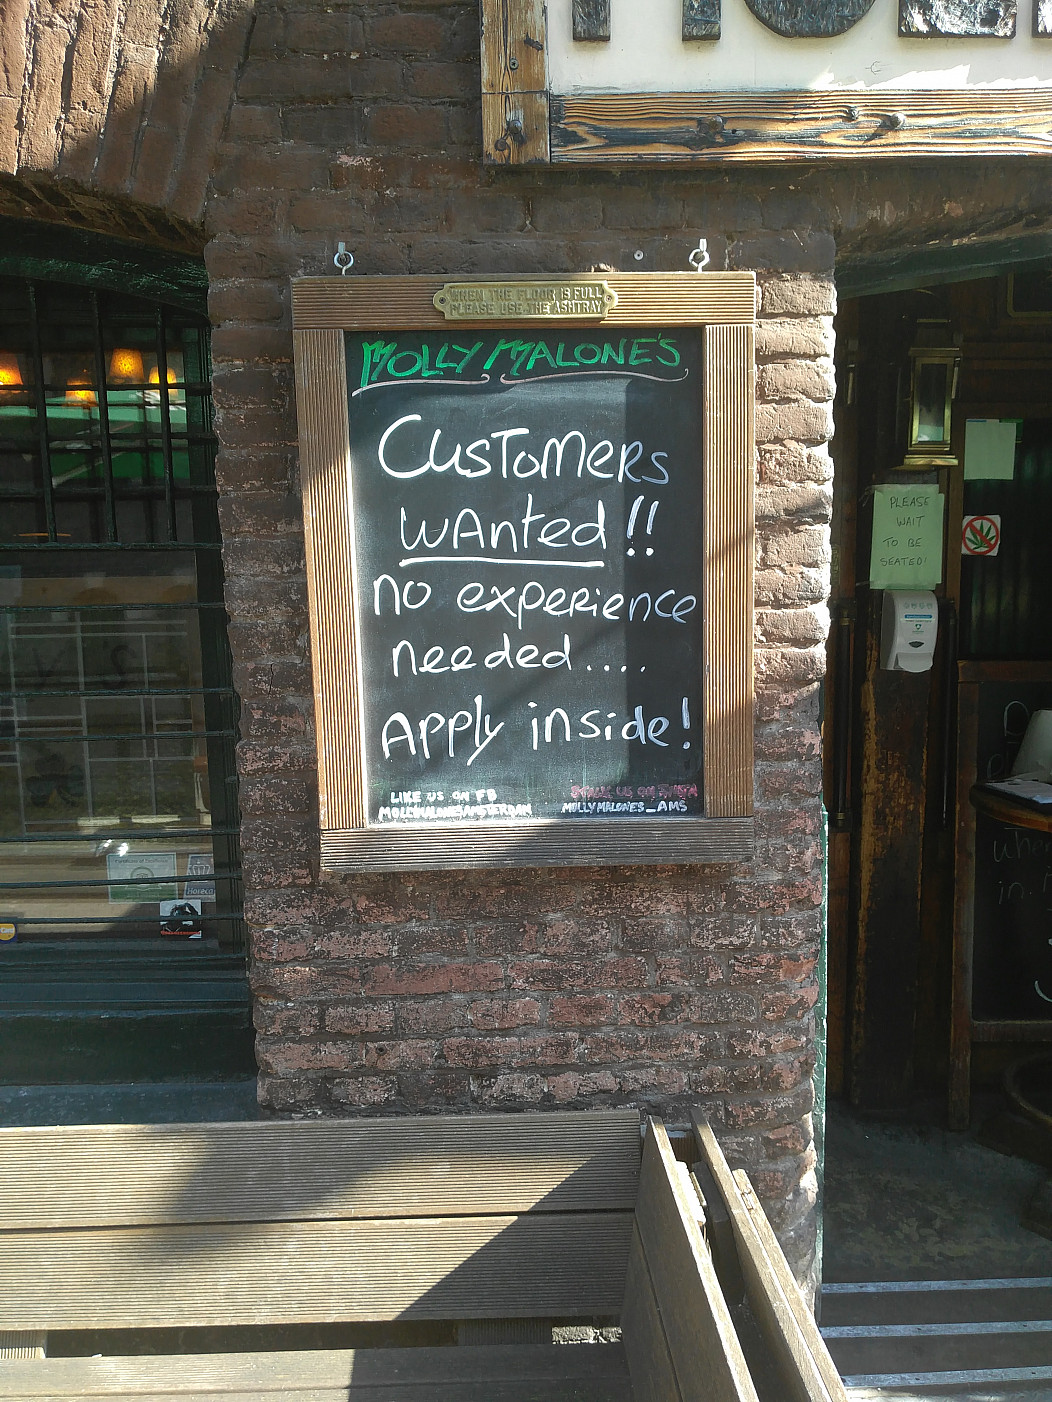 WHEN THE FLOOR IS FULL
PLEASE USE THE ASHTRAY
MOLLY MALONE'S
Customers
wanted!!
no experience
needed....
Apply inside!
LIKE US ON FB
MOLLYMALONESAMSTERDAM
MOLLYMALONES_AMS
PLEASE
WAIT
TO BE
SEATED!
Horeca
in.